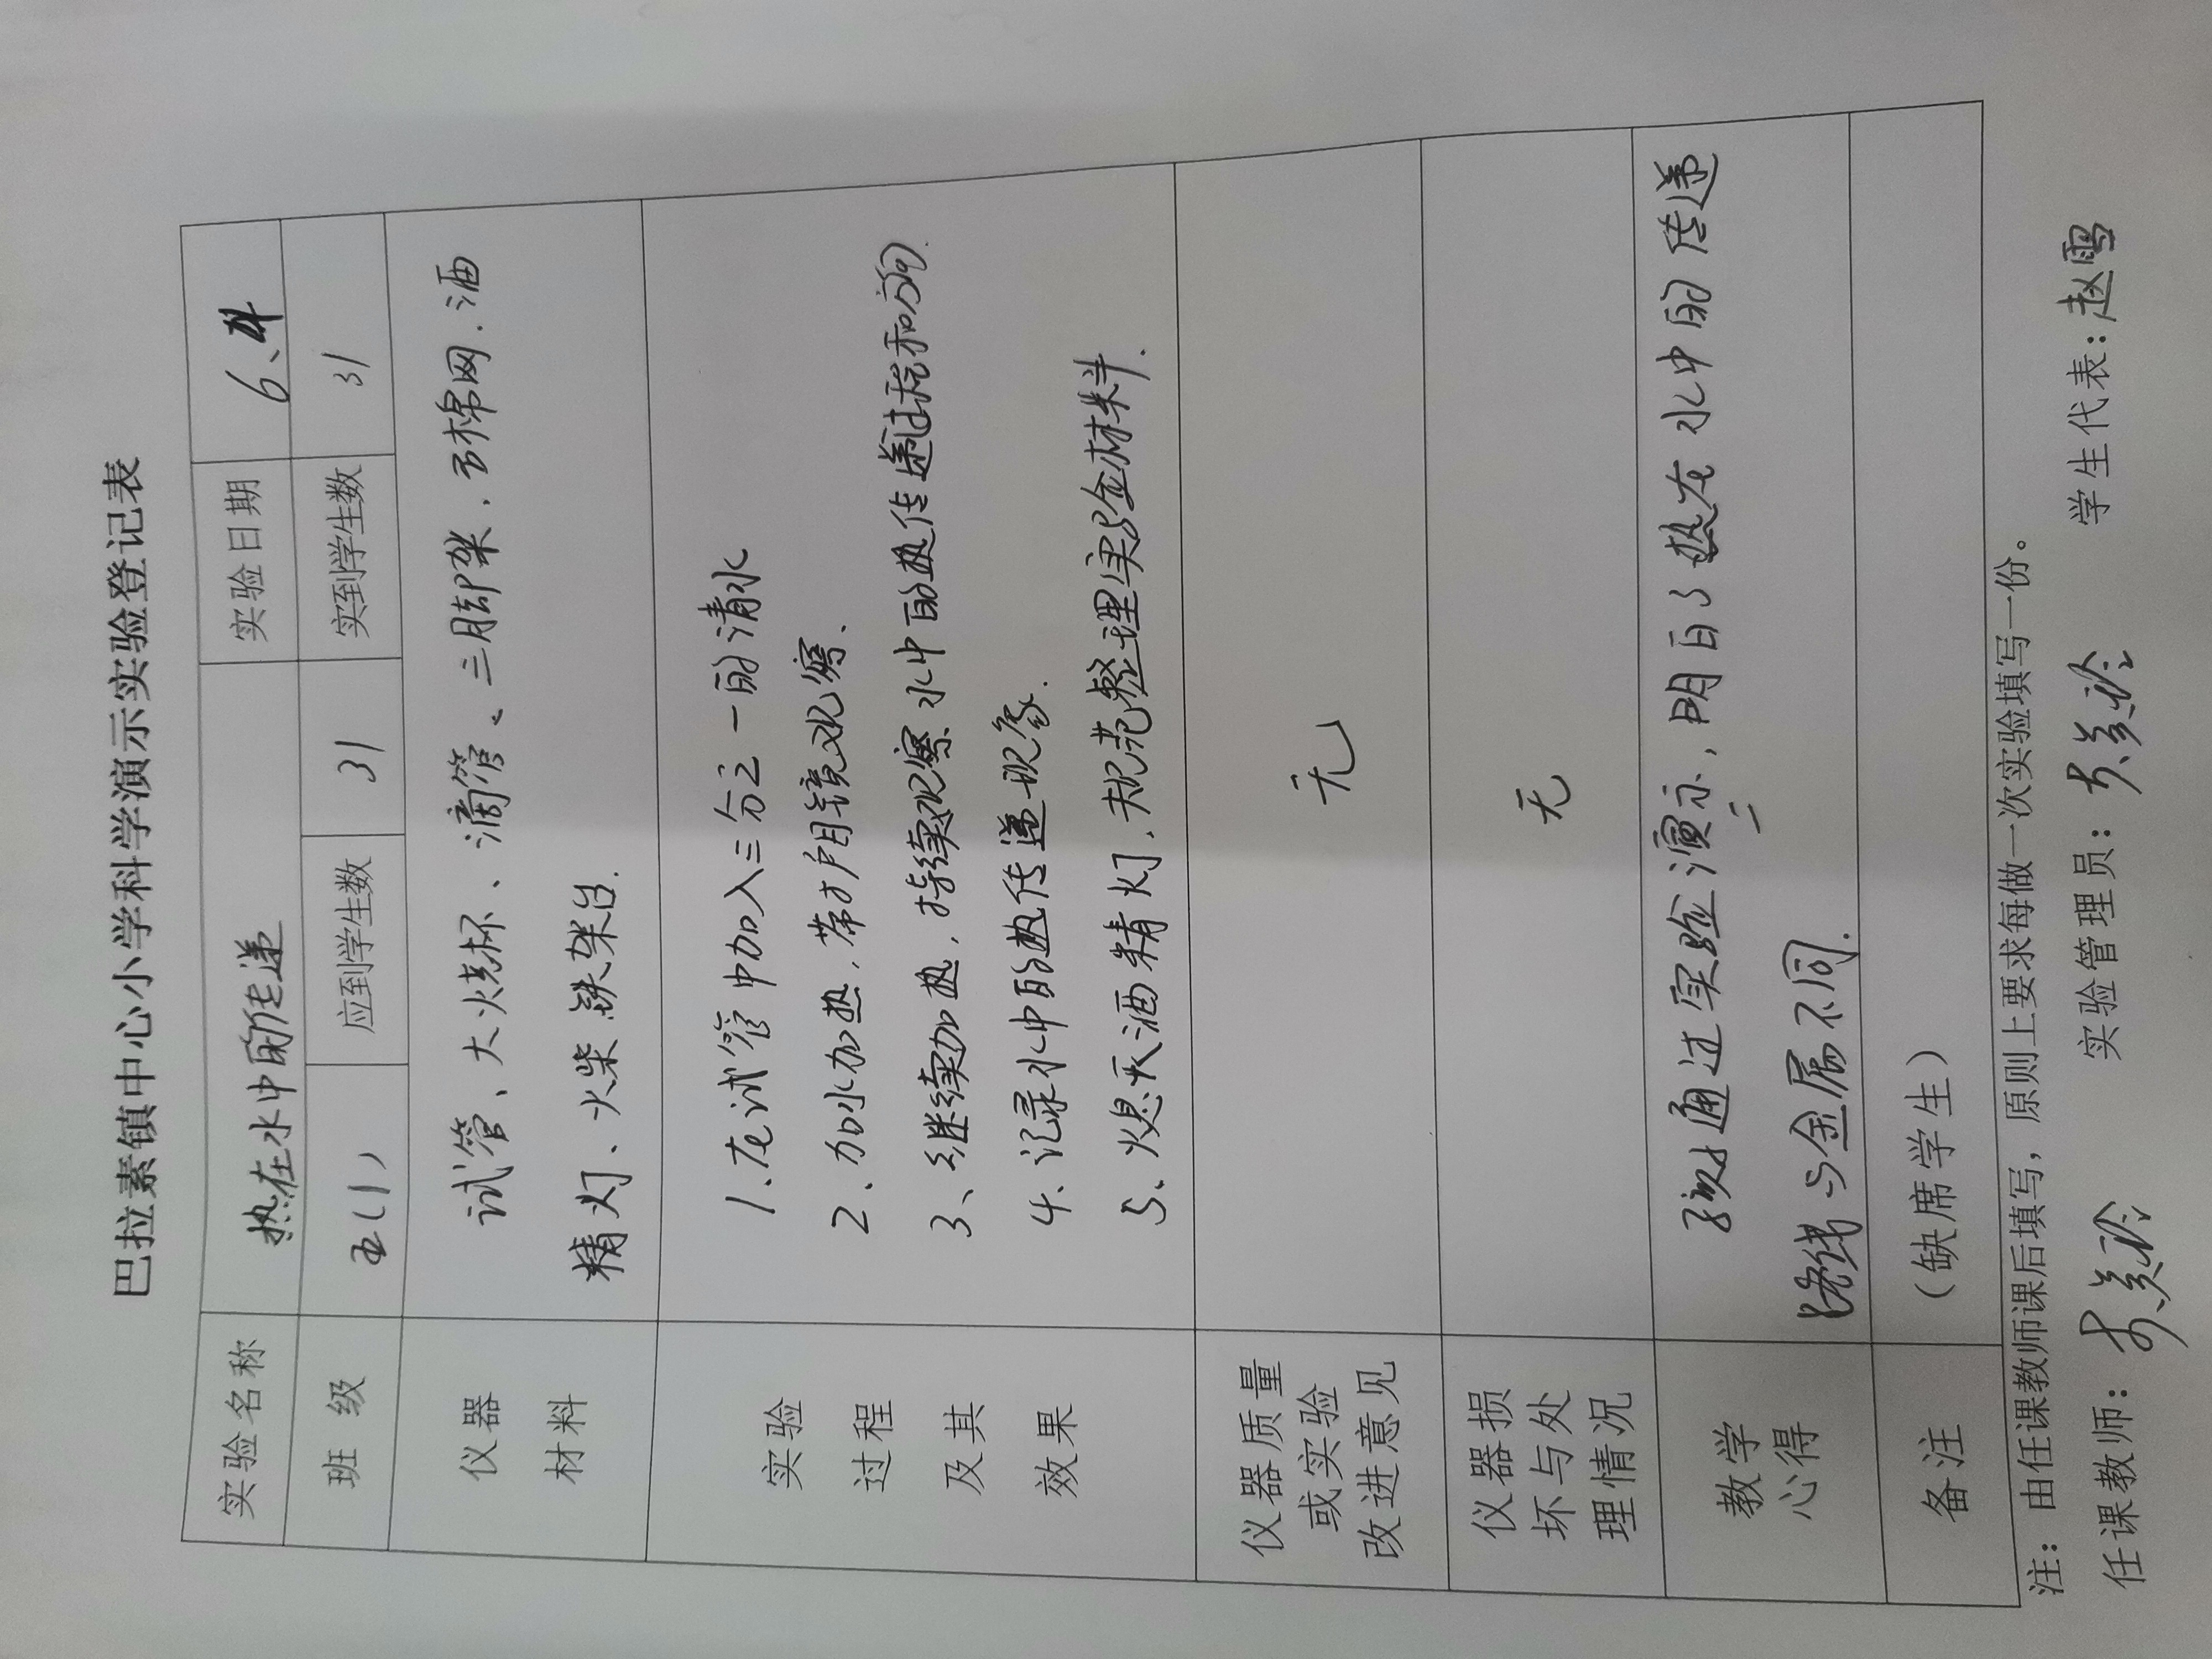 巴拉素镇中心小学科学演示实验登记表
实验名称 热在水中的传递 实验日期 6、4
班级 五(1) 应到学生数 31 实到学生数 31
仪器 试管、大火烧杯、滴管、三脚架、石棉网、酒
材料 精灯、火柴 铁架台.
实验 1.在试管中加入三分之一的清水
过程 2、加水加热,带护目镜观察.
及其 3、继续加热,持续观察水中的热传递过程和方向.
效果 4、记录水中的热传递现象.
5、熄灭酒精灯,规范整理实验材料.
仪器质量
或实验 无
改进意见
仪器损
坏与处 无
理情况
教学 通过实验演示,明白了热在水中的传递
心得 与金属不同.
备注 （缺席学生）
注：由任课教师课后填写，原则上要求每做一次实验填写一份。
任课教师： 实验管理员： 学生代表：赵雪